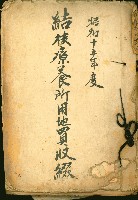 昭和十五年度
結核療養所用地買収綴